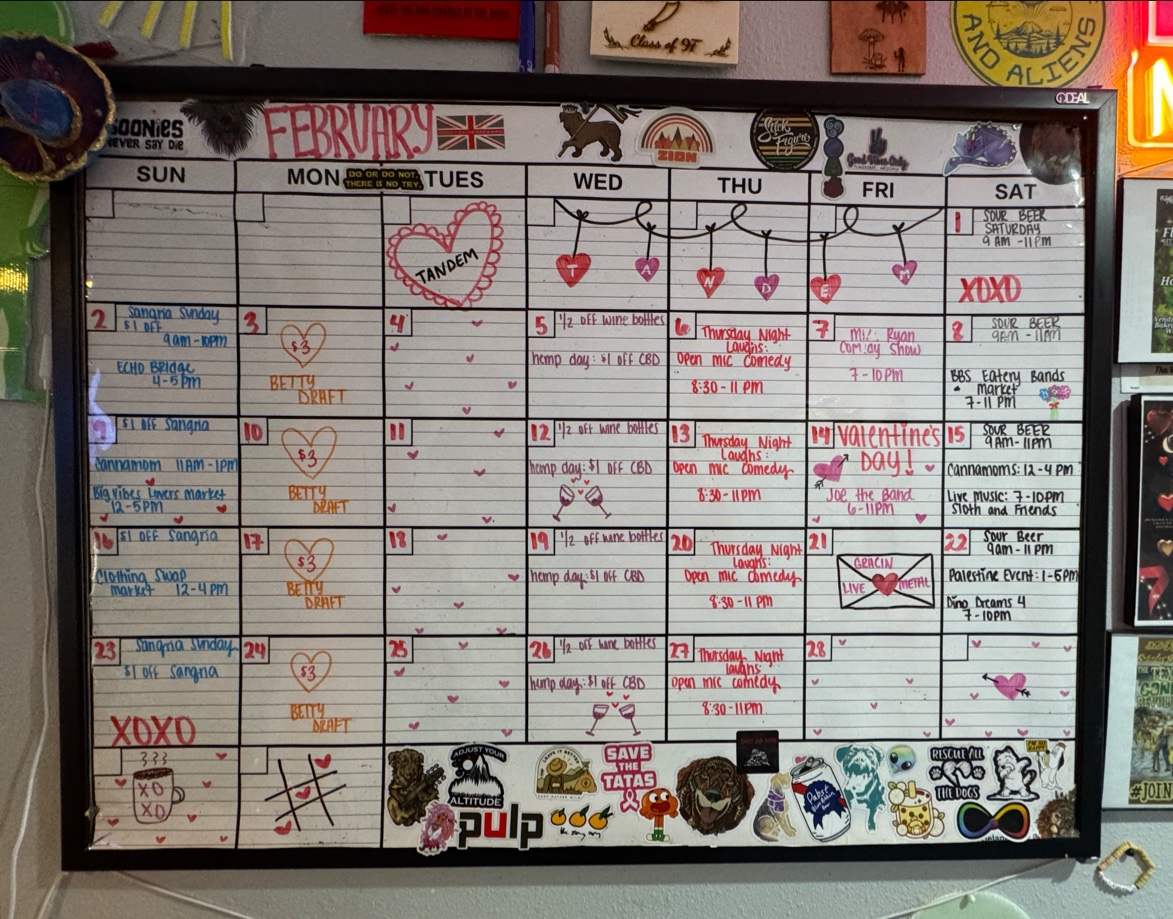 Class of 97
AND ALIENS
GOONIES
NEVER SAY DIE
FEBRUARY
ZION
Stick
Figure
Good Vibes Only
SUN
MON
DO OR DO NOT.
THERE IS NO TRY.
TUES
WED
THU
FRI
SAT
TANDEM
T A N D E M
1 SOUR BEER
SATURDAY
9 AM -11PM
XOXO
2 Sangria Sunday
$1 OFF
9am-10pm
ECHO BRIDGE
4-5pm
3
$3
BETTY
DRAFT
4
5 1/2 off wine bottles
hemp day: $1 off CBD
6 Thursday Night
Laughs:
Open mic comedy
8:30-11 PM
7
Ryan
Comedy Show
7-10PM
8 SOUR BEER
9AM-11AM
BBS Eatery Bands
Market
7-11 PM
9 $1 OFF Sangria
Cannamom 11AM-1PM
Big Vibes Lovers market
12-5PM
10
$3
BETTY
DRAFT
11
12 1/2 off wine bottles
hemp day: $1 off CBD
13 Thursday Night
Laughs:
Open mic comedy
8:30-11PM
14 Valentine's
DAY!
Joe the Band
6-11PM
15 SOUR BEER
9AM-11PM
Cannamoms: 12-4 PM
Live Music: 7-10pm
Sloth and Friends
16 $1 OFF Sangria
Clothing Swap
market 12-4 PM
17
$3
BETTY
DRAFT
18
19 1/2 off wine bottles
hemp day: $1 off CBD
20 Thursday Night
Laughs:
Open mic comedy
8:30-11 PM
21
GRACIN
LIVE METAL
22 Sour Beer
9am-11 PM
Palestine Event: 1-5PM
Dino Dreams 4
7-10PM
23 Sangria Sunday
$1 OFF Sangria
XOXO
24
$3
BETTY
DRAFT
25
26 1/2 off wine bottles
hemp day: $1 off CBD
27 Thursday Night
laughs:
Open mic comedy
8:30-11PM
28
XO
XO
ADJUST YOUR
ALTITUDE
pulp
LEAVE IT BETTER
SAVE
THE
TATAS
Pabst
Blue Ribbon
RESCUE ALL
THE DOGS
#JOIN